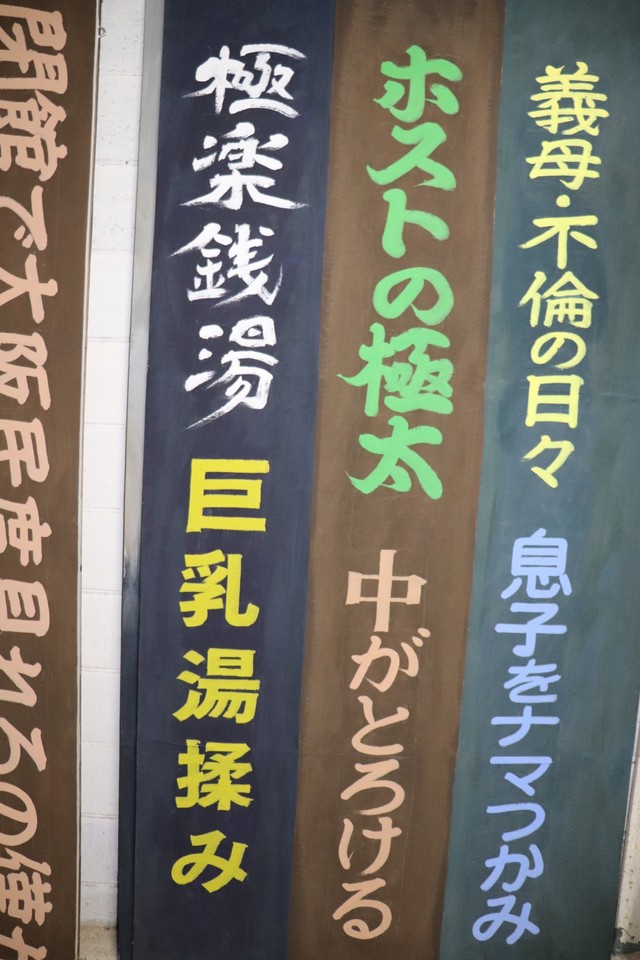 義母・不倫の日々 息子をナマつかみ
ホストの極太 中がとろける
極楽銭湯 巨乳湯揉み
閉館で大阪尺度見れるの俺だ